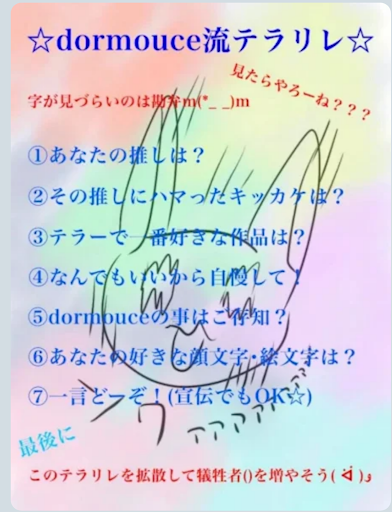 ☆dormouce流テラリレ☆
見たらやろーね？？？
字が見づらいのは勘弁m(*_ _)m
①あなたの推しは？
②その推しにハマったキッカケは？
③テラーで一番好きな作品は？
④なんでもいいから自慢して！
⑤dormouceの事はご存知？
⑥あなたの好きな顔文字･絵文字は？
⑦一言どーぞ！(宣伝でもOK☆)
最後に
このテラリレを拡散して犠牲者()を増やそう( ᐛ )و